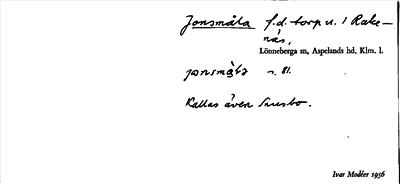 Jonsmåla f.d. torp u. 1 Rake-
näs,
Lönneberga sn, Aspelands hd, Klm. l.
jonsmåla s. 81.
Kallas även Snesbo.
Ivar Modéer 1956